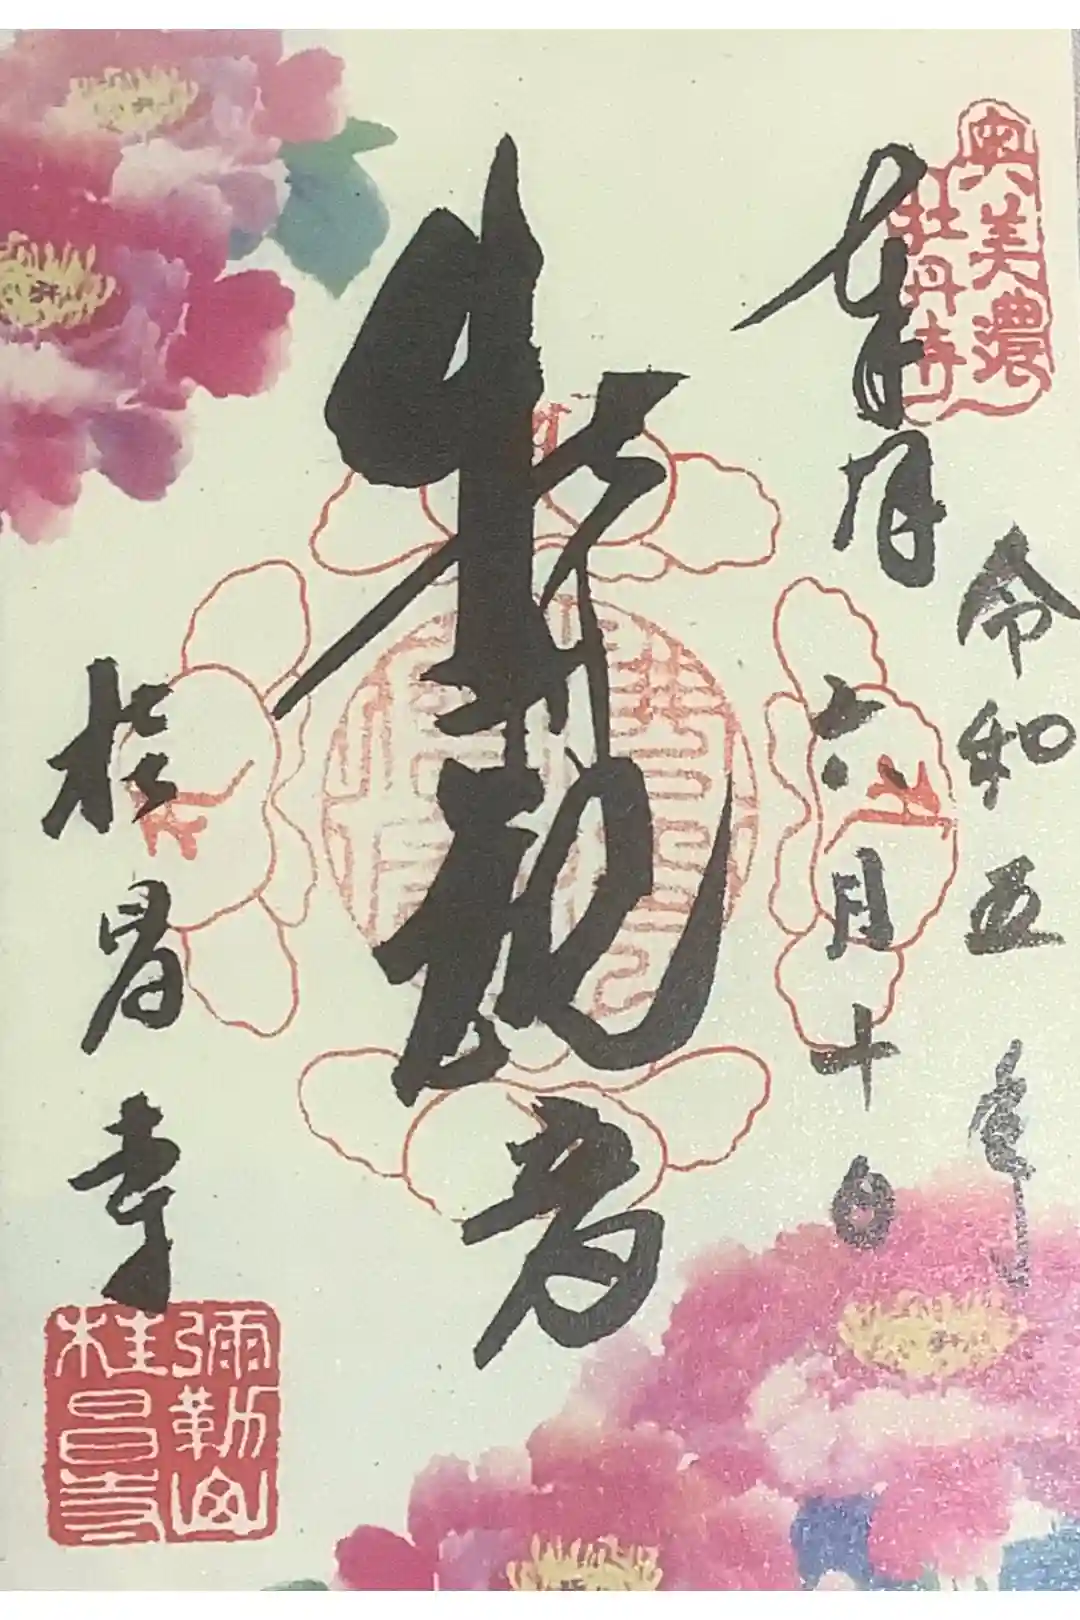 奥美濃
牡丹寺
奉拝
令和五年
六月十日
聖観音
桂昌寺
彌勒山
桂昌寺